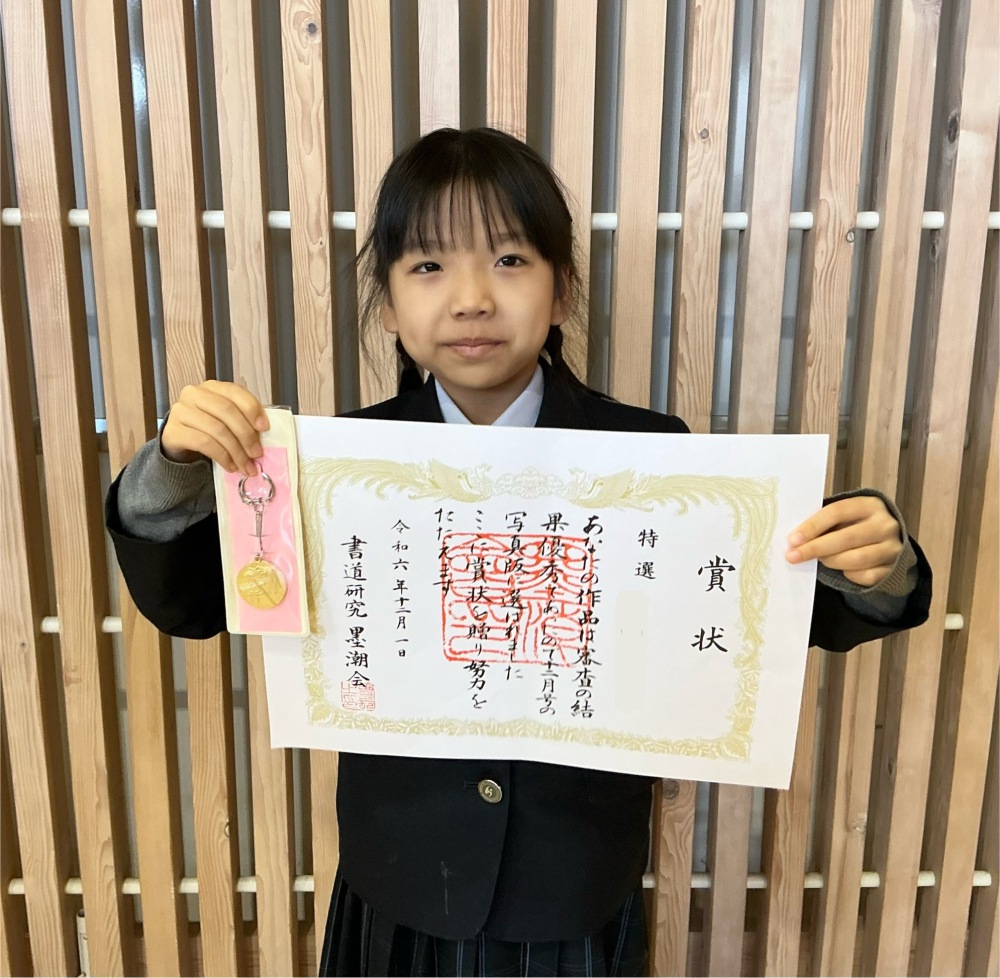 賞状
特選
あなたの作品は審査の結
果優秀でありので十二月号の
写真版に選ばれました
ここに賞状を贈り努力を
たたえます
令和六年十二月一日
書道研究 墨潮会